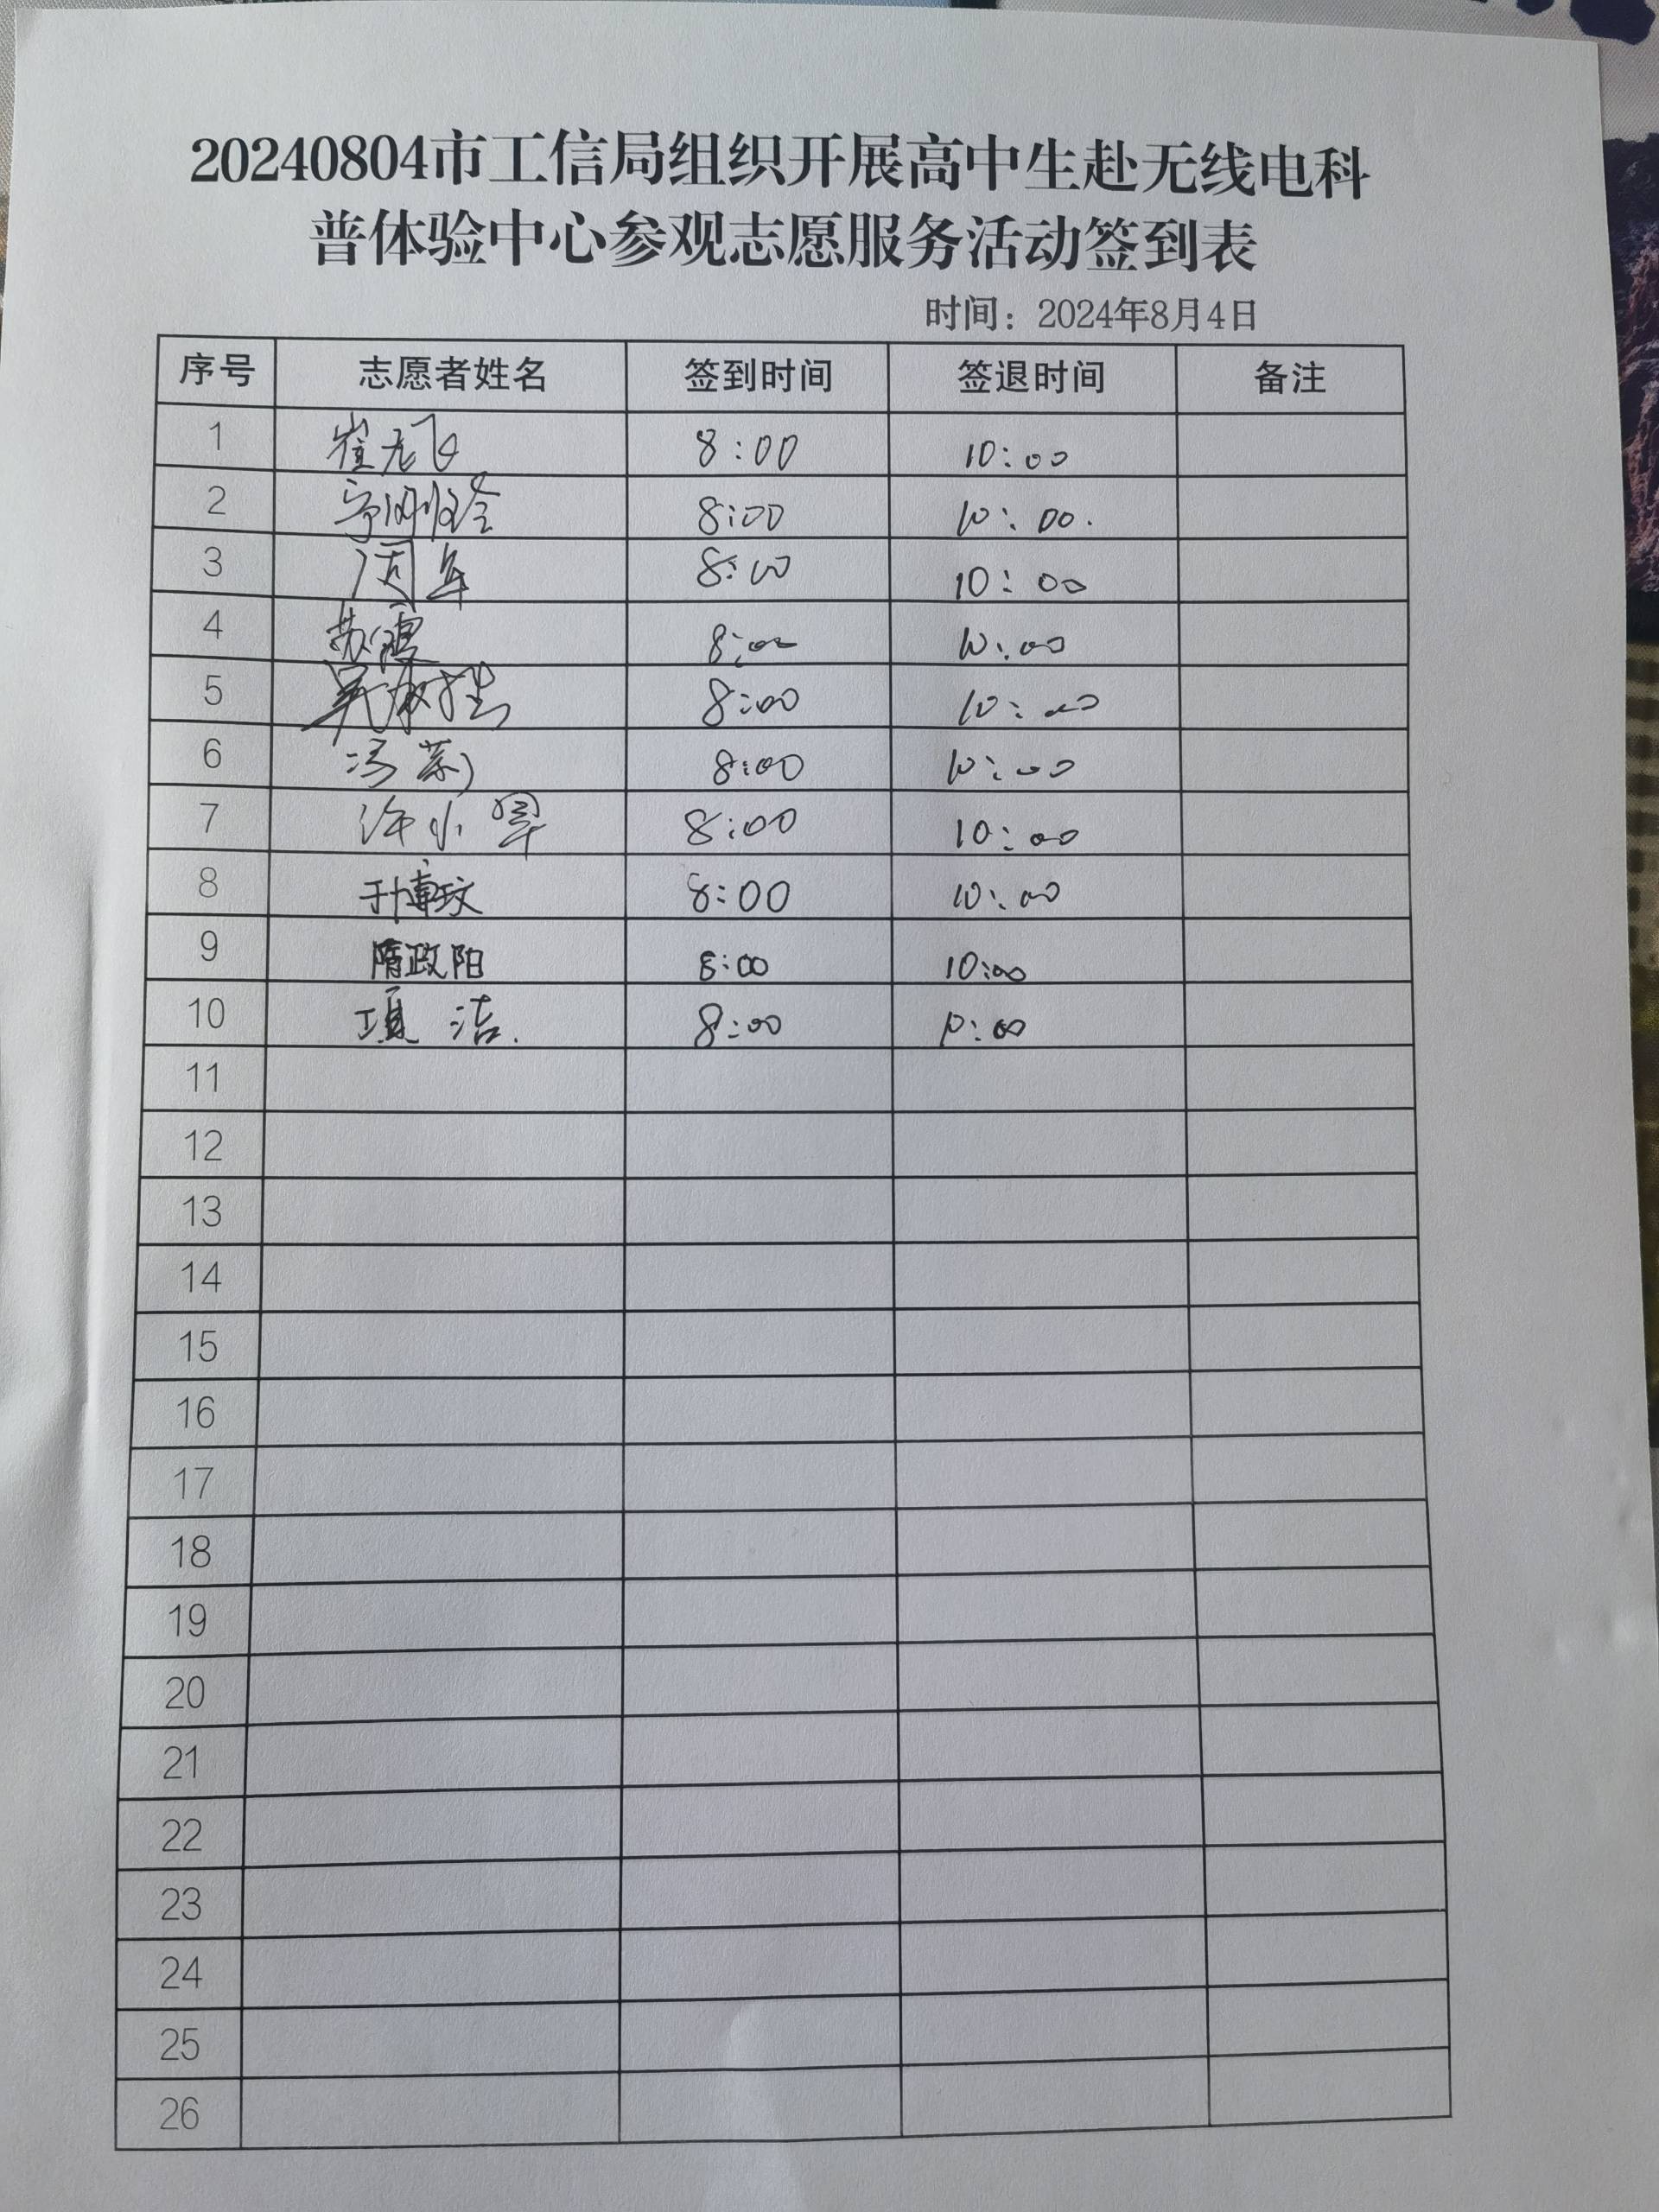 20240804市工信局组织开展高中生赴无线电科
普体验中心参观志愿服务活动签到表
时间：2024年8月4日
序号 志愿者姓名 签到时间 签退时间 备注
1 崔龙飞 8:00 10:00
2 8:00 10:00.
3 周军 8:00 10:00
4 8:00 10:00
5 8:00 10:00
6 8:00 10:00
7 许小军 8:00 10:00
8 于博文 8:00 10:00
9 隋政阳 8:00 10:00
10 项洁. 8:00 10:00
11
12
13
14
15
16
17
18
19
20
21
22
23
24
25
26